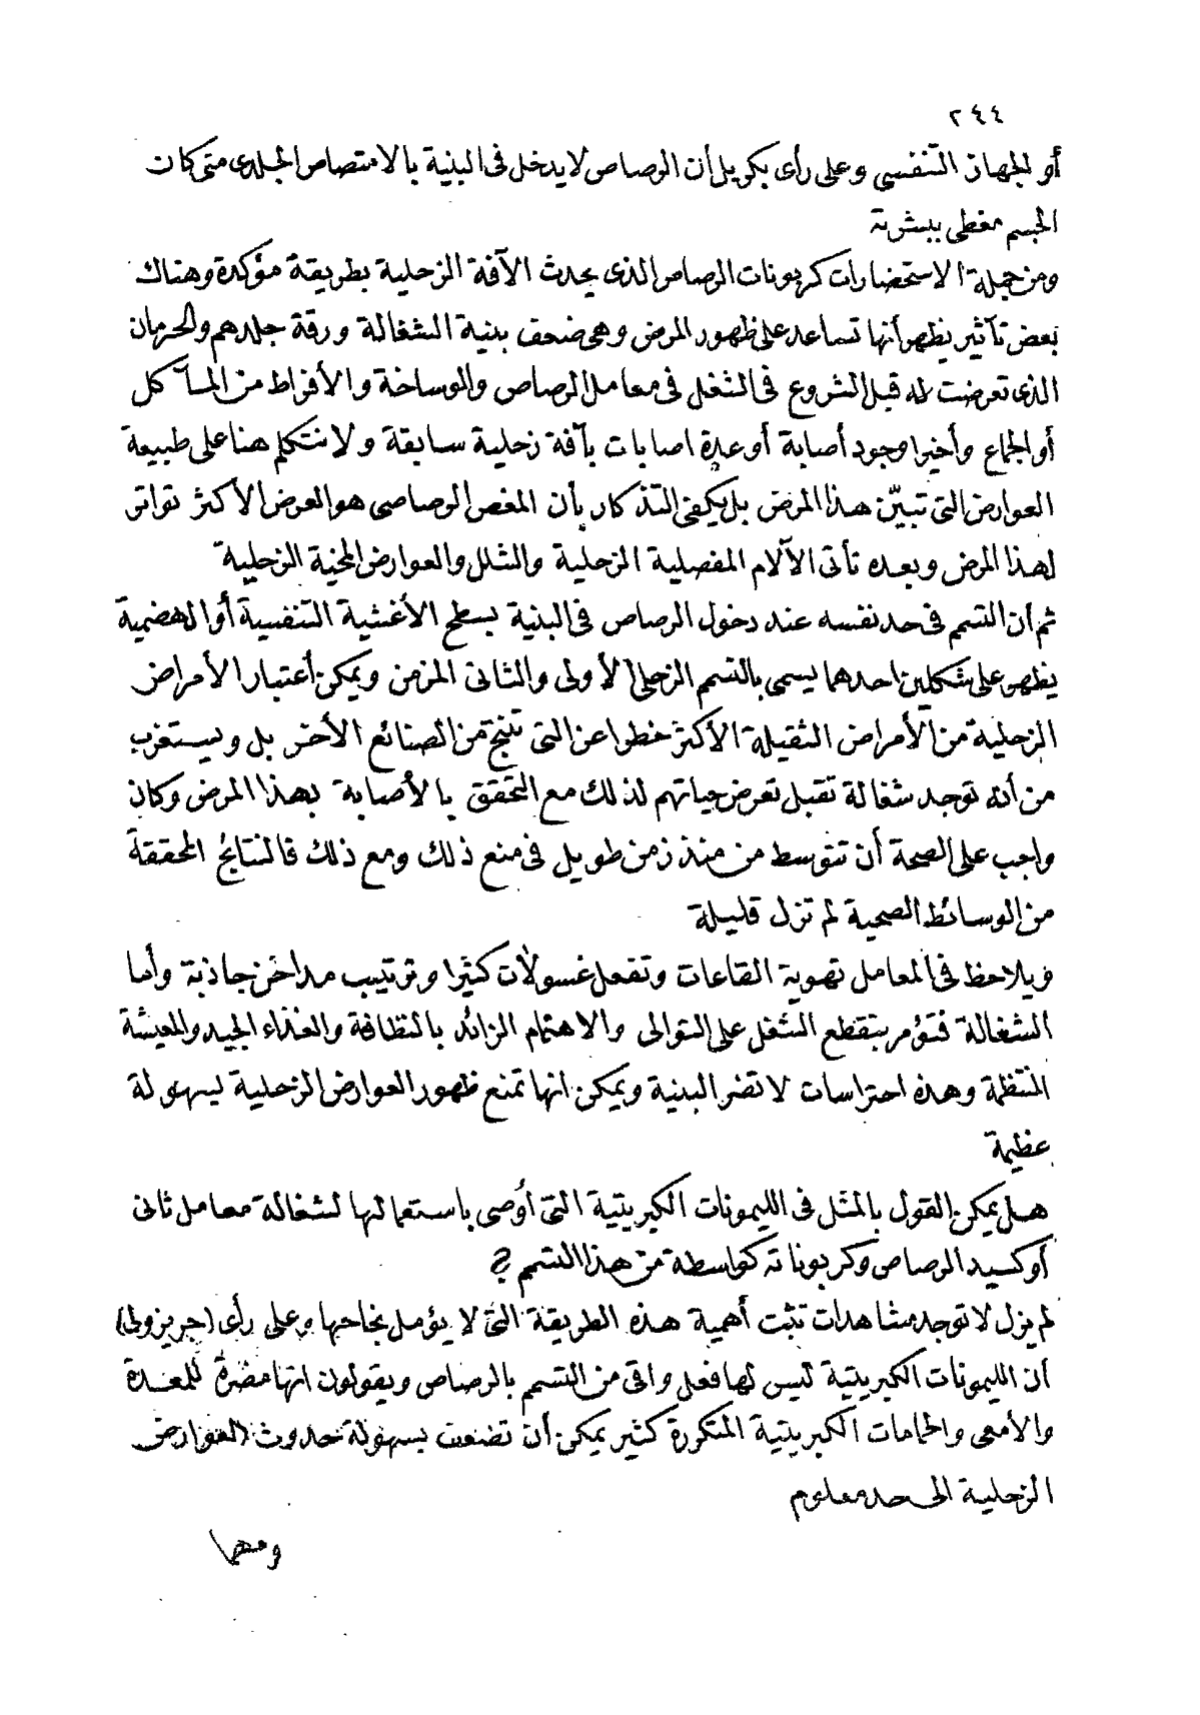 ٢٤٤
أو الجهاز التنفسي وعلى رأى بكريل أن الرصاص لايدخل فى البنية بالامتصاص الجلدى متى كان
الجسم مغطى ببشرته
ومن جملة الاستحضارات كربونات الرصاص الذى يحدث الآفة الزحلية بطريقة مؤكدة وهناك
بعض تآثير يظهر أنها تساعد على ظهور المرض وهى ضعف بنية الشغالة ورقة جلدهم والحرمان
الذى تعرضت له قبل الشروع فى الشغل فى معامل الرصاص والوساخة والأفراط من المآكل
أو الجماع وأخيرا وجود أصابة أو عدة اصابات بآفة زحلية سابقة ولانتكلم هنا على طبيعة
العوارض التى تبيّن هذا المرض بل يكفى التذكار بأن المغص الرصاصى هو العرض الأكثر تواتر
لهذا المرض وبعده تأتى الآلام المفصلية الزحلية والشلل والعوارض المخية الزحلية
ثم ان التسم فى حد نفسه عند دخول الرصاص فى البنية بسطح الأغشية التنفسية أو الهضمية
يظهر على شكلين احدهما يسمى بالتسم الزحلى الأولى والثانى المزمن ويمكن أعتبار الأمراض
الزحلية من الأمراض الثقيلة الأكثر خطرا عن التى تنتج من الصنائع الأخر بل ويستغرب
من أنه توجد شغالة تقبل تعرض حياتهم لذلك مع التحقق بالأصابة بهذا المرض وكان
واجب على الصحة أن تتوسط من منذ زمن طويل فى منع ذلك ومع ذلك فالنتائج المحققة
من الوسائط الصحية لم تزل قليلة
ويلاحظ فى المعامل تهوية القاعات وتفعل غسولات كثيرا وترتيب مداخن جاذبة وأما
الشغالة فتؤمر بتقطع الشغل على التوالى والاهتمام الزائد بالنظافة والغذاء الجيد والمعيشة
المنتظمة وهذه احتراسات لاتضر البنية ويمكن انها تمنع ظهور العوارض الزحلية بسهولة
عظيمة
هل يمكن القول بالمثل فى الليمونات الكبريتية التى أوصى باستعمالها لشغالة معامل ثانى
أوكسيد الرصاص وكربوناته كواسطة من هذا التسم ?
لم يزل لاتوجد مشاهدات تثبت أهمية هذه الطريقة التى لا يؤمل نجاحها وعلى رأى (جريزولى)
ان الليمونات الكبريتية ليس لها فعل واقى من التسم بالرصاص ويقولون انها مضرة للمعدة
والأمعى والحمامات الكبريتية المتكررة كثير يمكن أن تضعف بسهولة حدوث العوارض
الزحلية الى حد معلوم
ومهما